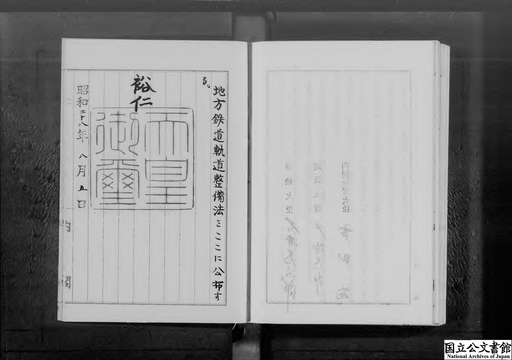 地方鉄道軌道整備法をここに公布す
る。
裕仁
天皇
御璽
昭和二十八年八月五日
内閣
国立公文書館
National Archives of Japan